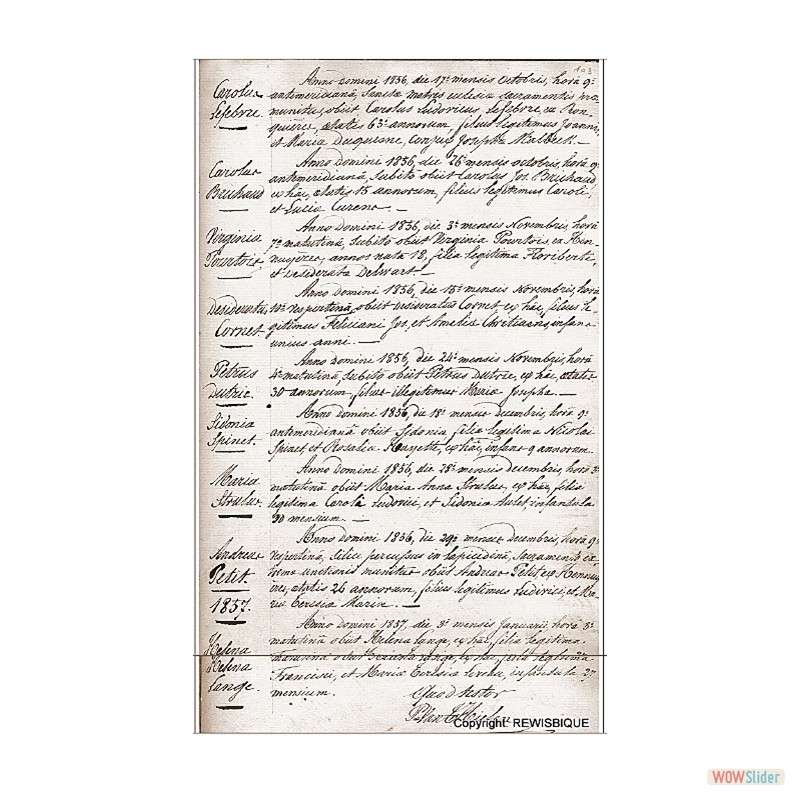 103
Carolus
Lefebvre
Anno Domini 1836, die 17ª mensis octobris, horâ 9ª
antimeridianâ, Sancta matris ecclesia sacramentis
munitus, obiit Carolus Ludovicus Lefebvre, ex
aetatis 63ª annorum, filius legitimus Joannis,
et Maria Duquesne, conjux Josepha
Carolus
Bruhaud
Anno Domini 1836, die 26ª mensis octobris, horâ 9ª
antimeridianâ, subito obiit Carolus Jos. Bruhaud
ex hâc, aetatis 15 annorum, filius legitimus Caroli,
et Lucia
Virginia
Pourtois
Anno Domini 1836, die 3ª mensis Novembris, horâ
7ª matutinâ, subito obiit Virginia Pourtois, ex Hen-
nuyères, annos nata 18, filia legitima Floriberti,
et Desiderata Delwart.
Desideratus
Cornet
Anno Domini 1836, die 15ª mensis Novembris, horâ
10ª vespertinâ, obiit Desideratus Cornet, ex hâc, filius le-
gitimus Feliciani Jos, et Amelia Chretiaens, infans
unius anni.
Petrus
Dutrie.
Anno Domini 1836, die 24ª mensis Novembris, horâ
4ª matutinâ, subito obiit Petrus Dutrie, ex hâc, aetatis
30 annorum, filius illegitimus Maria Josepha.
Sidonia
Spinet.
Anno Domini 1836, die 18ª mensis decembris, horâ 9ª
antimeridianâ obiit Sydonia, filia legitima Nicolai
Spinet, et Rosalia Hayette, ex hâc, infans 9 annorum.
Maria
Strulus.
Anno Domini 1836, die 28ª mensis decembris, horâ 3ª
matutinâ obiit Maria Anna Strulus, ex hâc, filia
legitima Caroli Ludovici, et Sidonia Aulet, infantula
30 mensium.
Andreas
Petit.
Anno Domini 1836, die 29ª mensis decembris, horâ 9ª
vespertinâ, silice percussus in lapicidinâ, sacramento ex-
treme unctionis munitus obiit Andreas Petit, ex Hennuy-
ères, aetatis 26 annorum, filius legitimus Ludovici, et Ma-
ria Teresia Marin.
1837.
Helena
Helena
Lange.
Anno Domini 1837, die 3ª mensis Januarii, horâ 5ª
matutinâ obiit Helena Lange, ex hâc, filia legitima
matutinâ obiit Helena Lange, ex hâc, filia legitima
Francisci, et Maria Teresia infantula
mensium.
Quod testor
Copyright: REWISBIQUE
WOWSlider